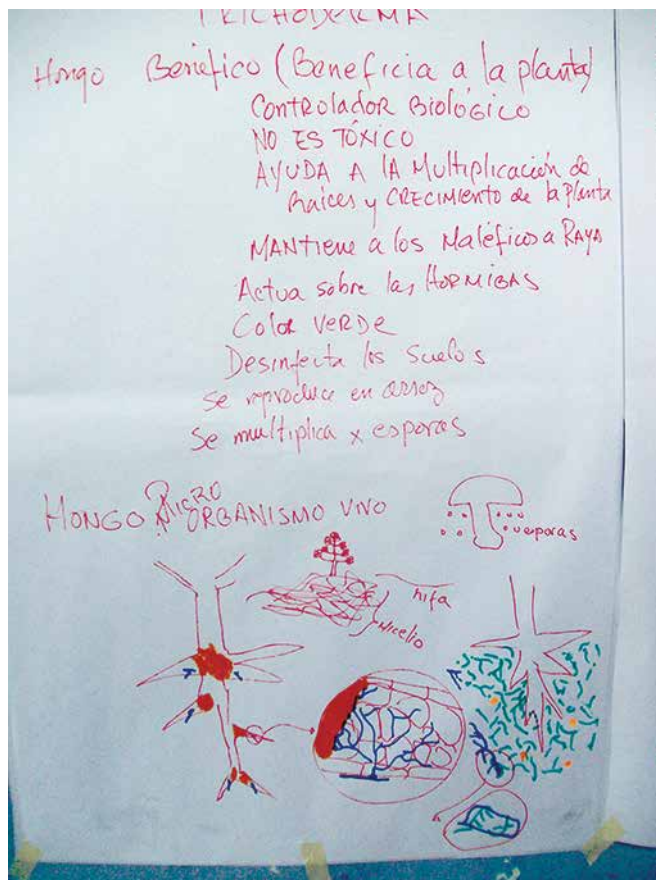 TRICHODERMA
Hongo Benefico (Beneficia a la planta)
CONTROLADOR BIOLÓGICO
NO ES TÓXICO
AYUDA A LA Multiplicación de
Raices y CRECIMIENTO de la Planta
MANTIENE a los Maléficos a RAYA
Actua sobre las HORMIGAS
Color VERDE
Desinfecta los Suelos
Se reproduce en arroz
Se multiplica x esporas
HONGO MICRO
ORGANISMO VIVO
esporas
hifa
Micelio